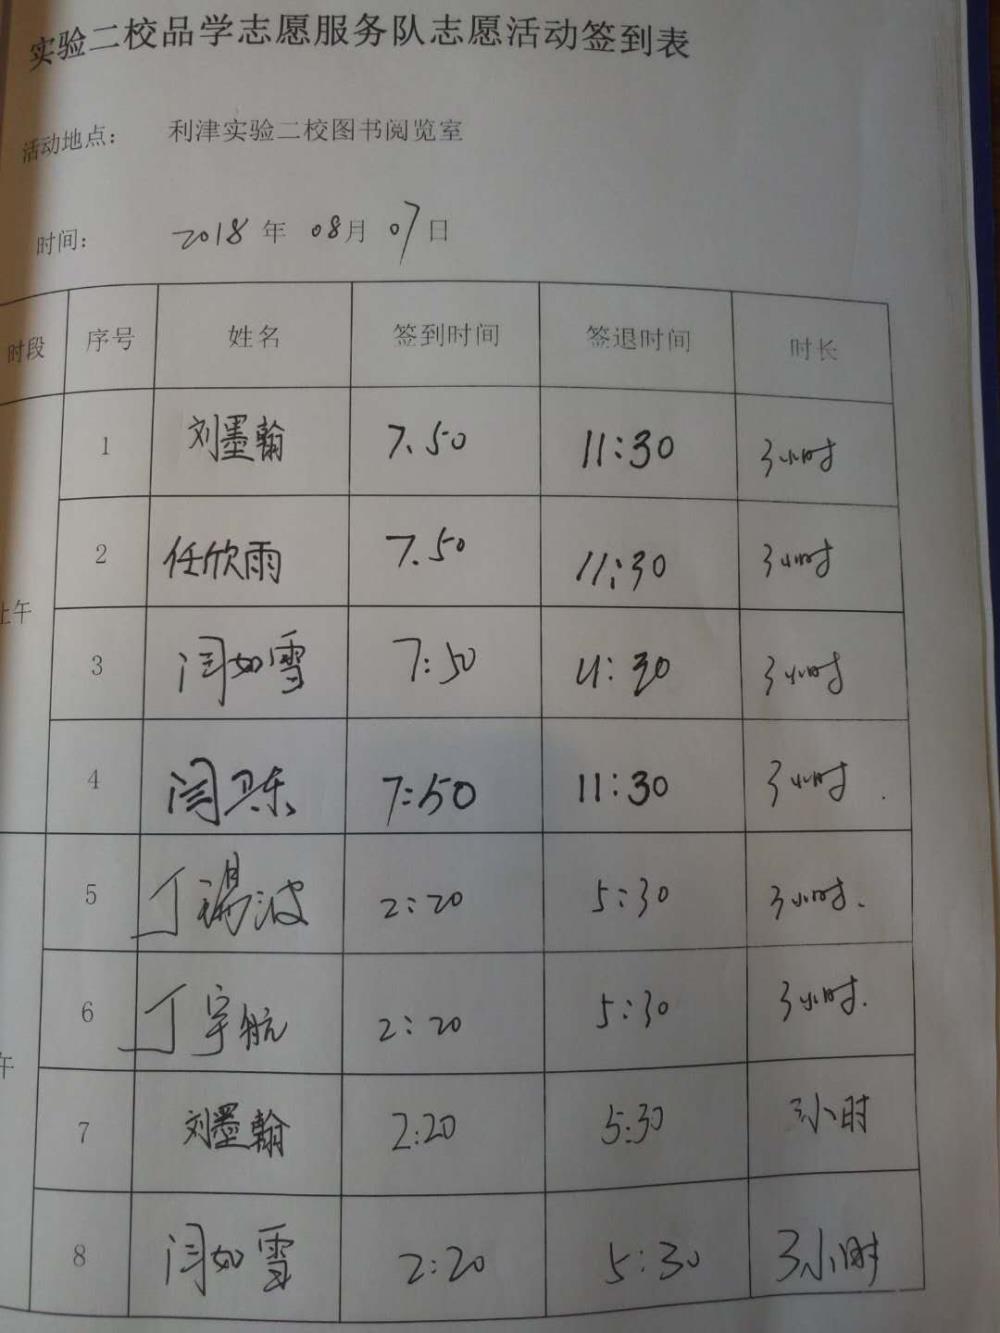 实验二校品学志愿服务队志愿活动签到表
活动地点： 利津实验二校图书阅览室
时间： 2018年 08月 07日
时段 序号 姓名 签到时间 签退时间 时长
上午
1 刘墨翰 7.50 11:30 3小时
2 任欣雨 7.50 11:30 3小时
3 闫如雪 7:50 11:30 3小时
4 闫卫东 7:50 11:30 3小时
午
5 丁锡波 2:20 5:30 3小时.
6 丁宇航 2:20 5:30 3小时.
7 刘墨翰 2:20 5:30 3小时
8 闫如雪 2:20 5:30 3小时